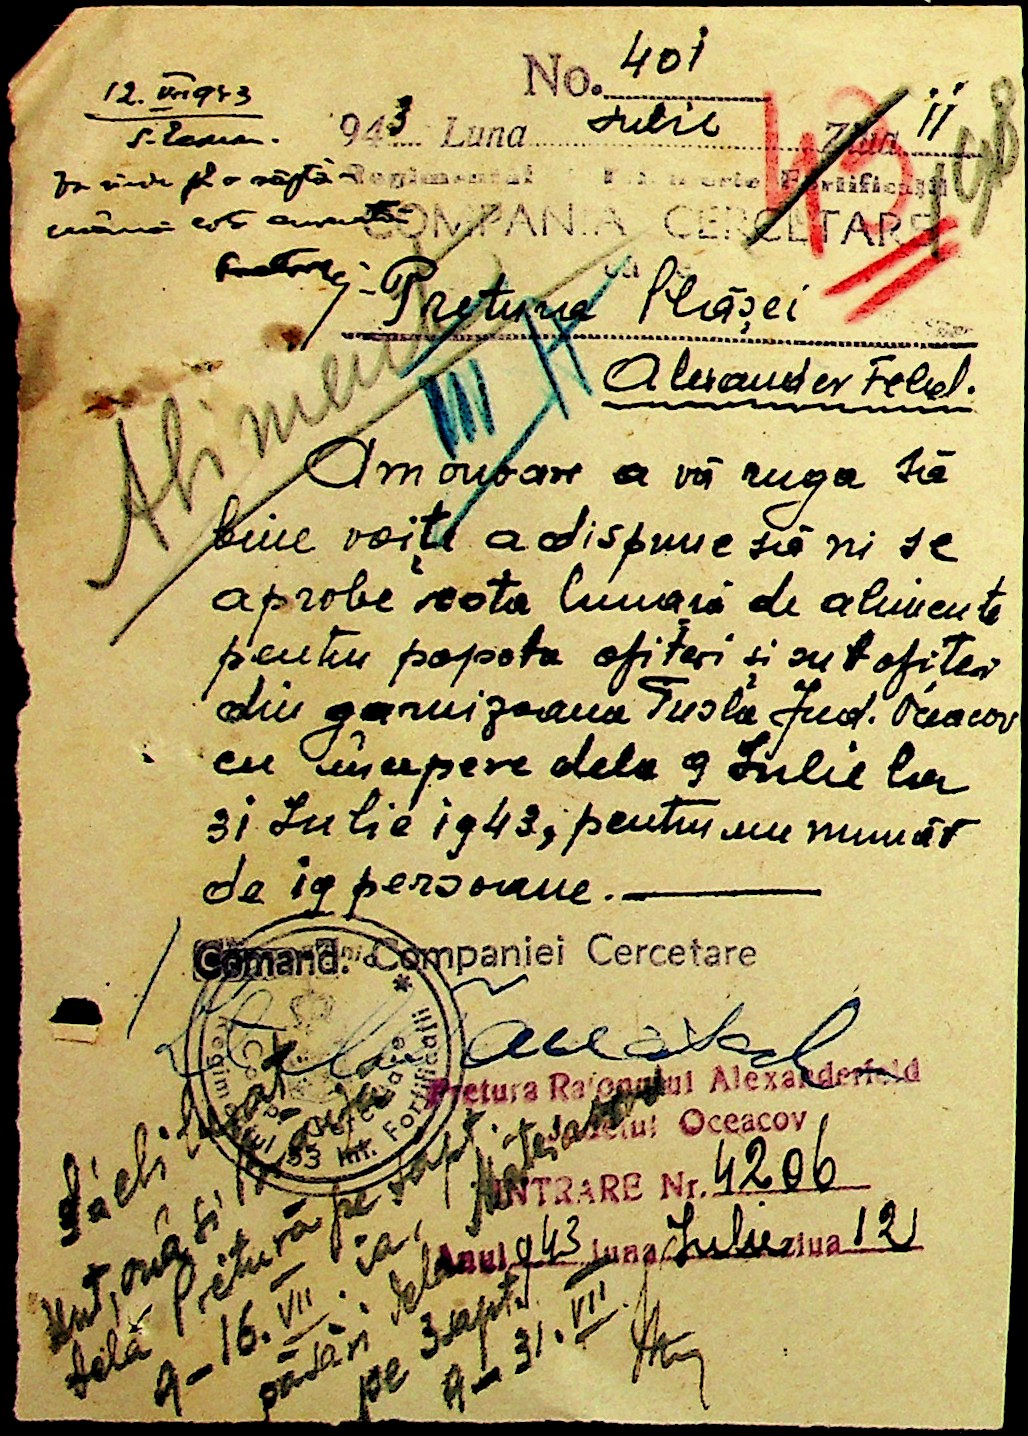 No. 401
943 Luna Iulie Ziua 11
12. VII 1943
Se va da pe o săptă-
Regimentul Fortificații
COMPANIA CERCETARE
către
Pretura Plășei
Alexander Feld.
Alimente
III
43
Am onoare a vă ruga să
bine voiți a dispune să ni se
aprobe cota lunară de alimente
pentru popota ofițeri și subofițeri
din garnizoana Tusla Jud. Oceacov
cu începere dela 9 Iulie la
31 Iulie 1943, pentru un număr
de 19 persoane.
Comand. Companiei Cercetare
Regimentul 53 Inf. Fortificații
Pretura Raionului Alexanderfeld
Județul Oceacov
INTRARE Nr. 4206
Anul 943 luna Iulie ziua 12
unt, ouă și
dela Pretură pe săpt.
9-16.VII. ia,
păsări dela
pe 3 săpt.
9-31.VII